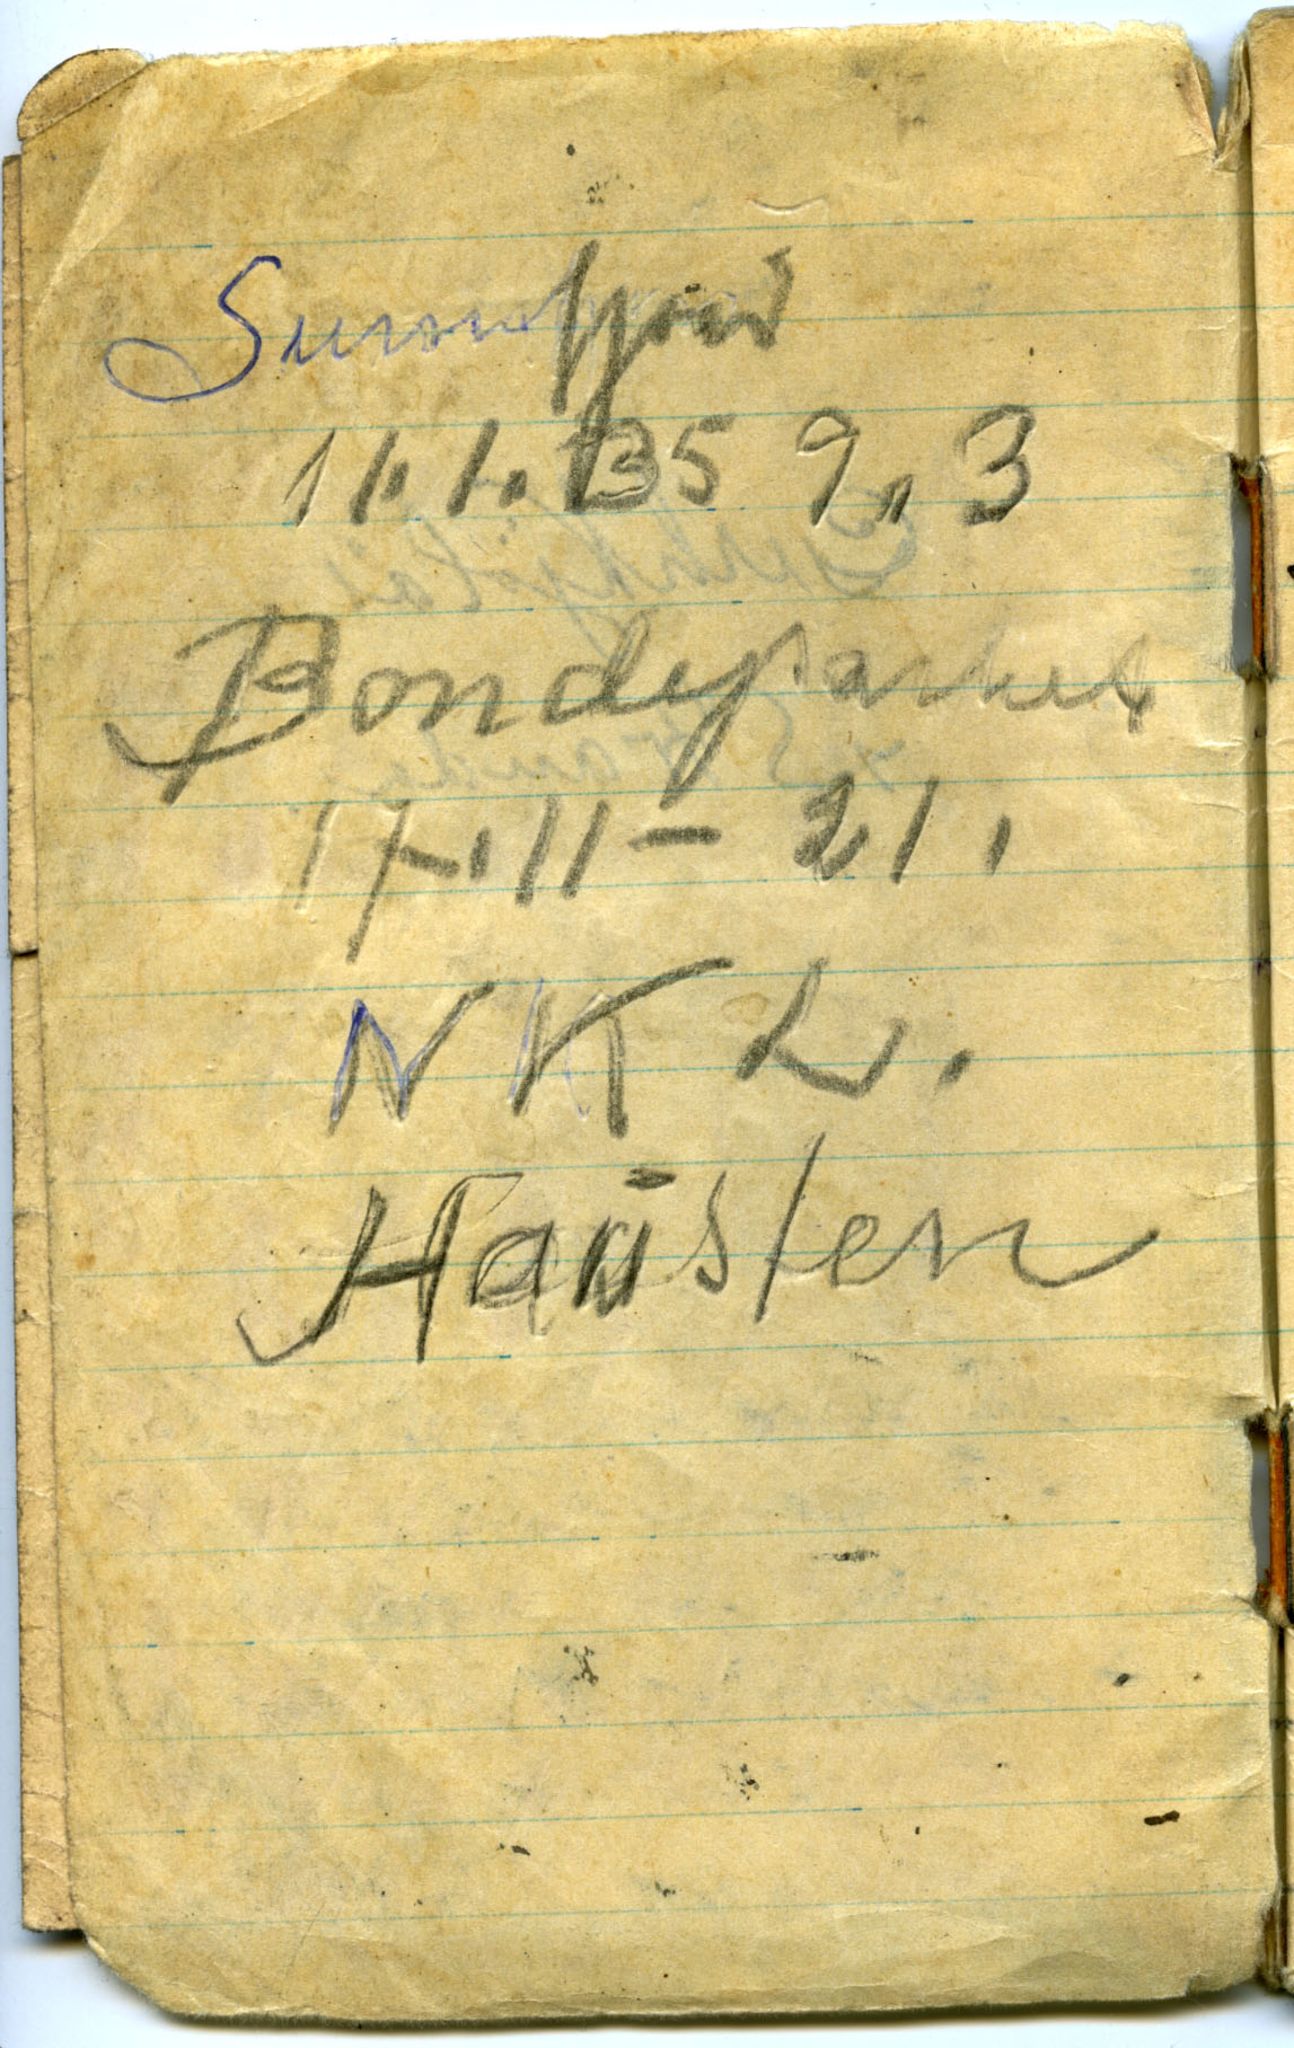 Sunn fjord
11.1.35 9.3
Bondepartiet
17.11-21.
N K L.
Haüsten